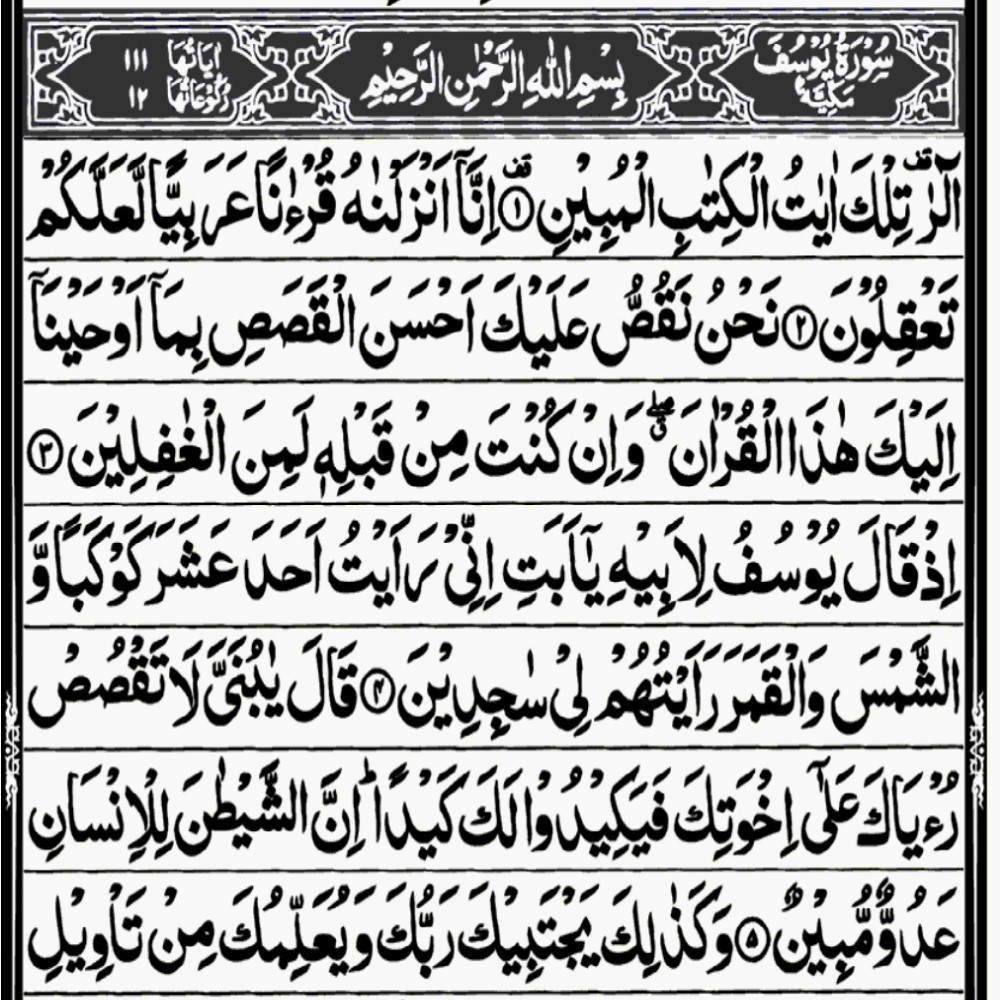 سُوْرَةُ يُوْسُفَ مَكِّيَّةٌ بِسْمِ اللّٰهِ الرَّحْمٰنِ الرَّحِيْمِ اٰيَاتُهَا ١١١ رُكُوْعَاتُهَا ١٢
الٓرٰ ۚ قف تِلْكَ اٰيٰتُ الْكِتٰبِ الْمُبِيْنِ ۝١ قف اِنَّآ اَنْزَلْنٰهُ قُرْءٰنًا عَرَبِيًّا لَّعَلَّكُمْ
تَعْقِلُوْنَ ۝٢ نَحْنُ نَقُصُّ عَلَيْكَ اَحْسَنَ الْقَصَصِ بِمَآ اَوْحَيْنَآ
اِلَيْكَ هٰذَا الْقُرْاٰنَ ۖق وَاِنْ كُنْتَ مِنْ قَبْلِهٖ لَمِنَ الْغٰفِلِيْنَ ۝٣
اِذْ قَالَ يُوْسُفُ لِاَبِيْهِ يٰٓاَبَتِ اِنِّيْ رَاَيْتُ اَحَدَ عَشَرَ كَوْكَبًا وَّ
الشَّمْسَ وَالْقَمَرَ رَاَيْتُهُمْ لِيْ سٰجِدِيْنَ ۝٤ قَالَ يٰبُنَيَّ لَا تَقْصُصْ
رُءْيَاكَ عَلٰٓى اِخْوَتِكَ فَيَكِيْدُوْا لَكَ كَيْدًا ؕ اِنَّ الشَّيْطٰنَ لِلْاِنْسَانِ
عَدُوٌّ مُّبِيْنٌ ۝٥ وَكَذٰلِكَ يَجْتَبِيْكَ رَبُّكَ وَيُعَلِّمُكَ مِنْ تَاْوِيْلِ